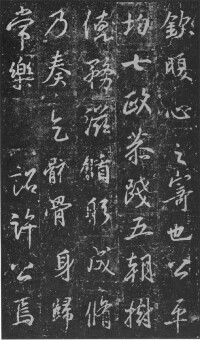 欽心之寄也公平
均七政恭踐五朝樹
德務滋成脩
乃奏乞骸骨身歸
常樂 詔許公焉